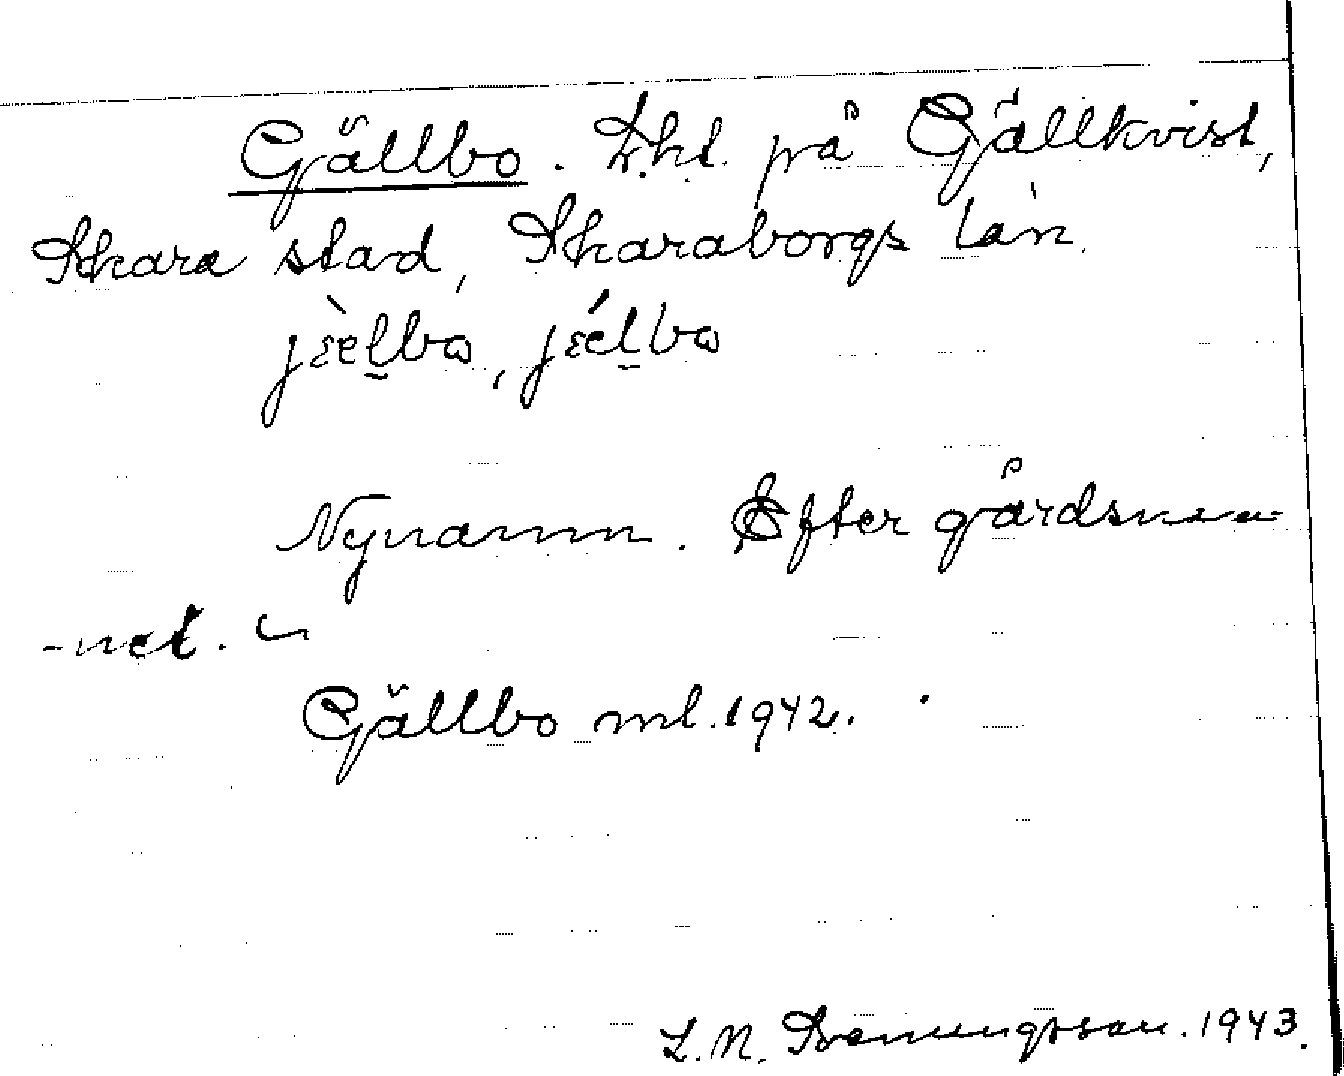 Gällbo. Lht. på Gällkvist,
Skara stad, Skaraborgs län.
jèelbo, jéelbo
Nynamn. Efter gårdsnam-
-net.
Gällbo ml. 1942.
L. N. 1943.